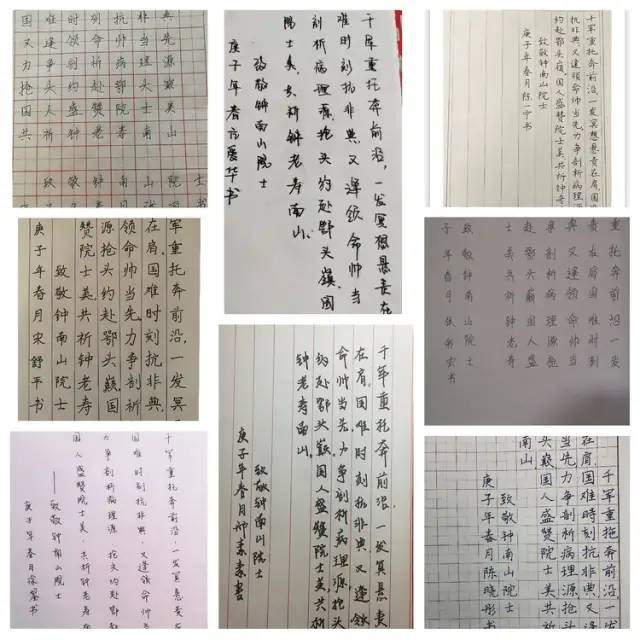 国难时刻抗非典
又逢领命帅当先
力争剖析病理源
抢头约赴鄂头巅
国人盛赞院士美
共祈钟老寿南山
致敬钟南山院士
书
千军重托奔前沿，一发冥想悬责在
难时刻抗非典又逢领命帅当
剖析病理源抢头约赴鄂头巅国
院士美，共祈钟老寿南山。
致敬钟南山院士
庚子年春月爱华书
千军重托奔前沿，一发冥想悬责在肩，国
抗非典又逢领命帅当先力争剖析病理源
约赴鄂头巅，国人盛赞院士美共祈钟老寿
致敬钟南山院士
庚子年春月陈一宁书
军重托奔前沿，一发冥
在肩。国难时刻抗非典，
领命帅当先力争剖析
源抢头约赴鄂头巅。国
赞院士美，共祈钟老寿
致敬钟南山院士
庚子年春月宋舒平书
军重托奔前沿一发
责在肩国难时刻
典又逢领命帅当
争剖析病理源抢
赴鄂头巅国人盛
士美共祈钟老寿
致敬钟南山院士
子年春月张书宏书
千军重托奔前沿，一发冥想悬责在
国难时刻抗非典，又逢领命帅当
力争剖析病理源，抢头约赴鄂
国人盛赞院士美，共祈钟老寿
——致敬钟南山院士
庚子年春月书
千军重托奔前沿，一发冥想悬责
在肩，国难时刻抗非典又逢领
命帅当先，力争剖析病理源，抢头
约赴鄂头巅，国人盛赞院士美，共祈
钟老寿南山。
致敬钟南山院士
庚子年春月素素书
千军重托奔前沿，一发
在肩。国难时刻抗非典，又
当先力争剖析病理源抢
头巅。国人盛赞院士美共
南山
致敬钟南山院士
庚子年春月陈晓彤书